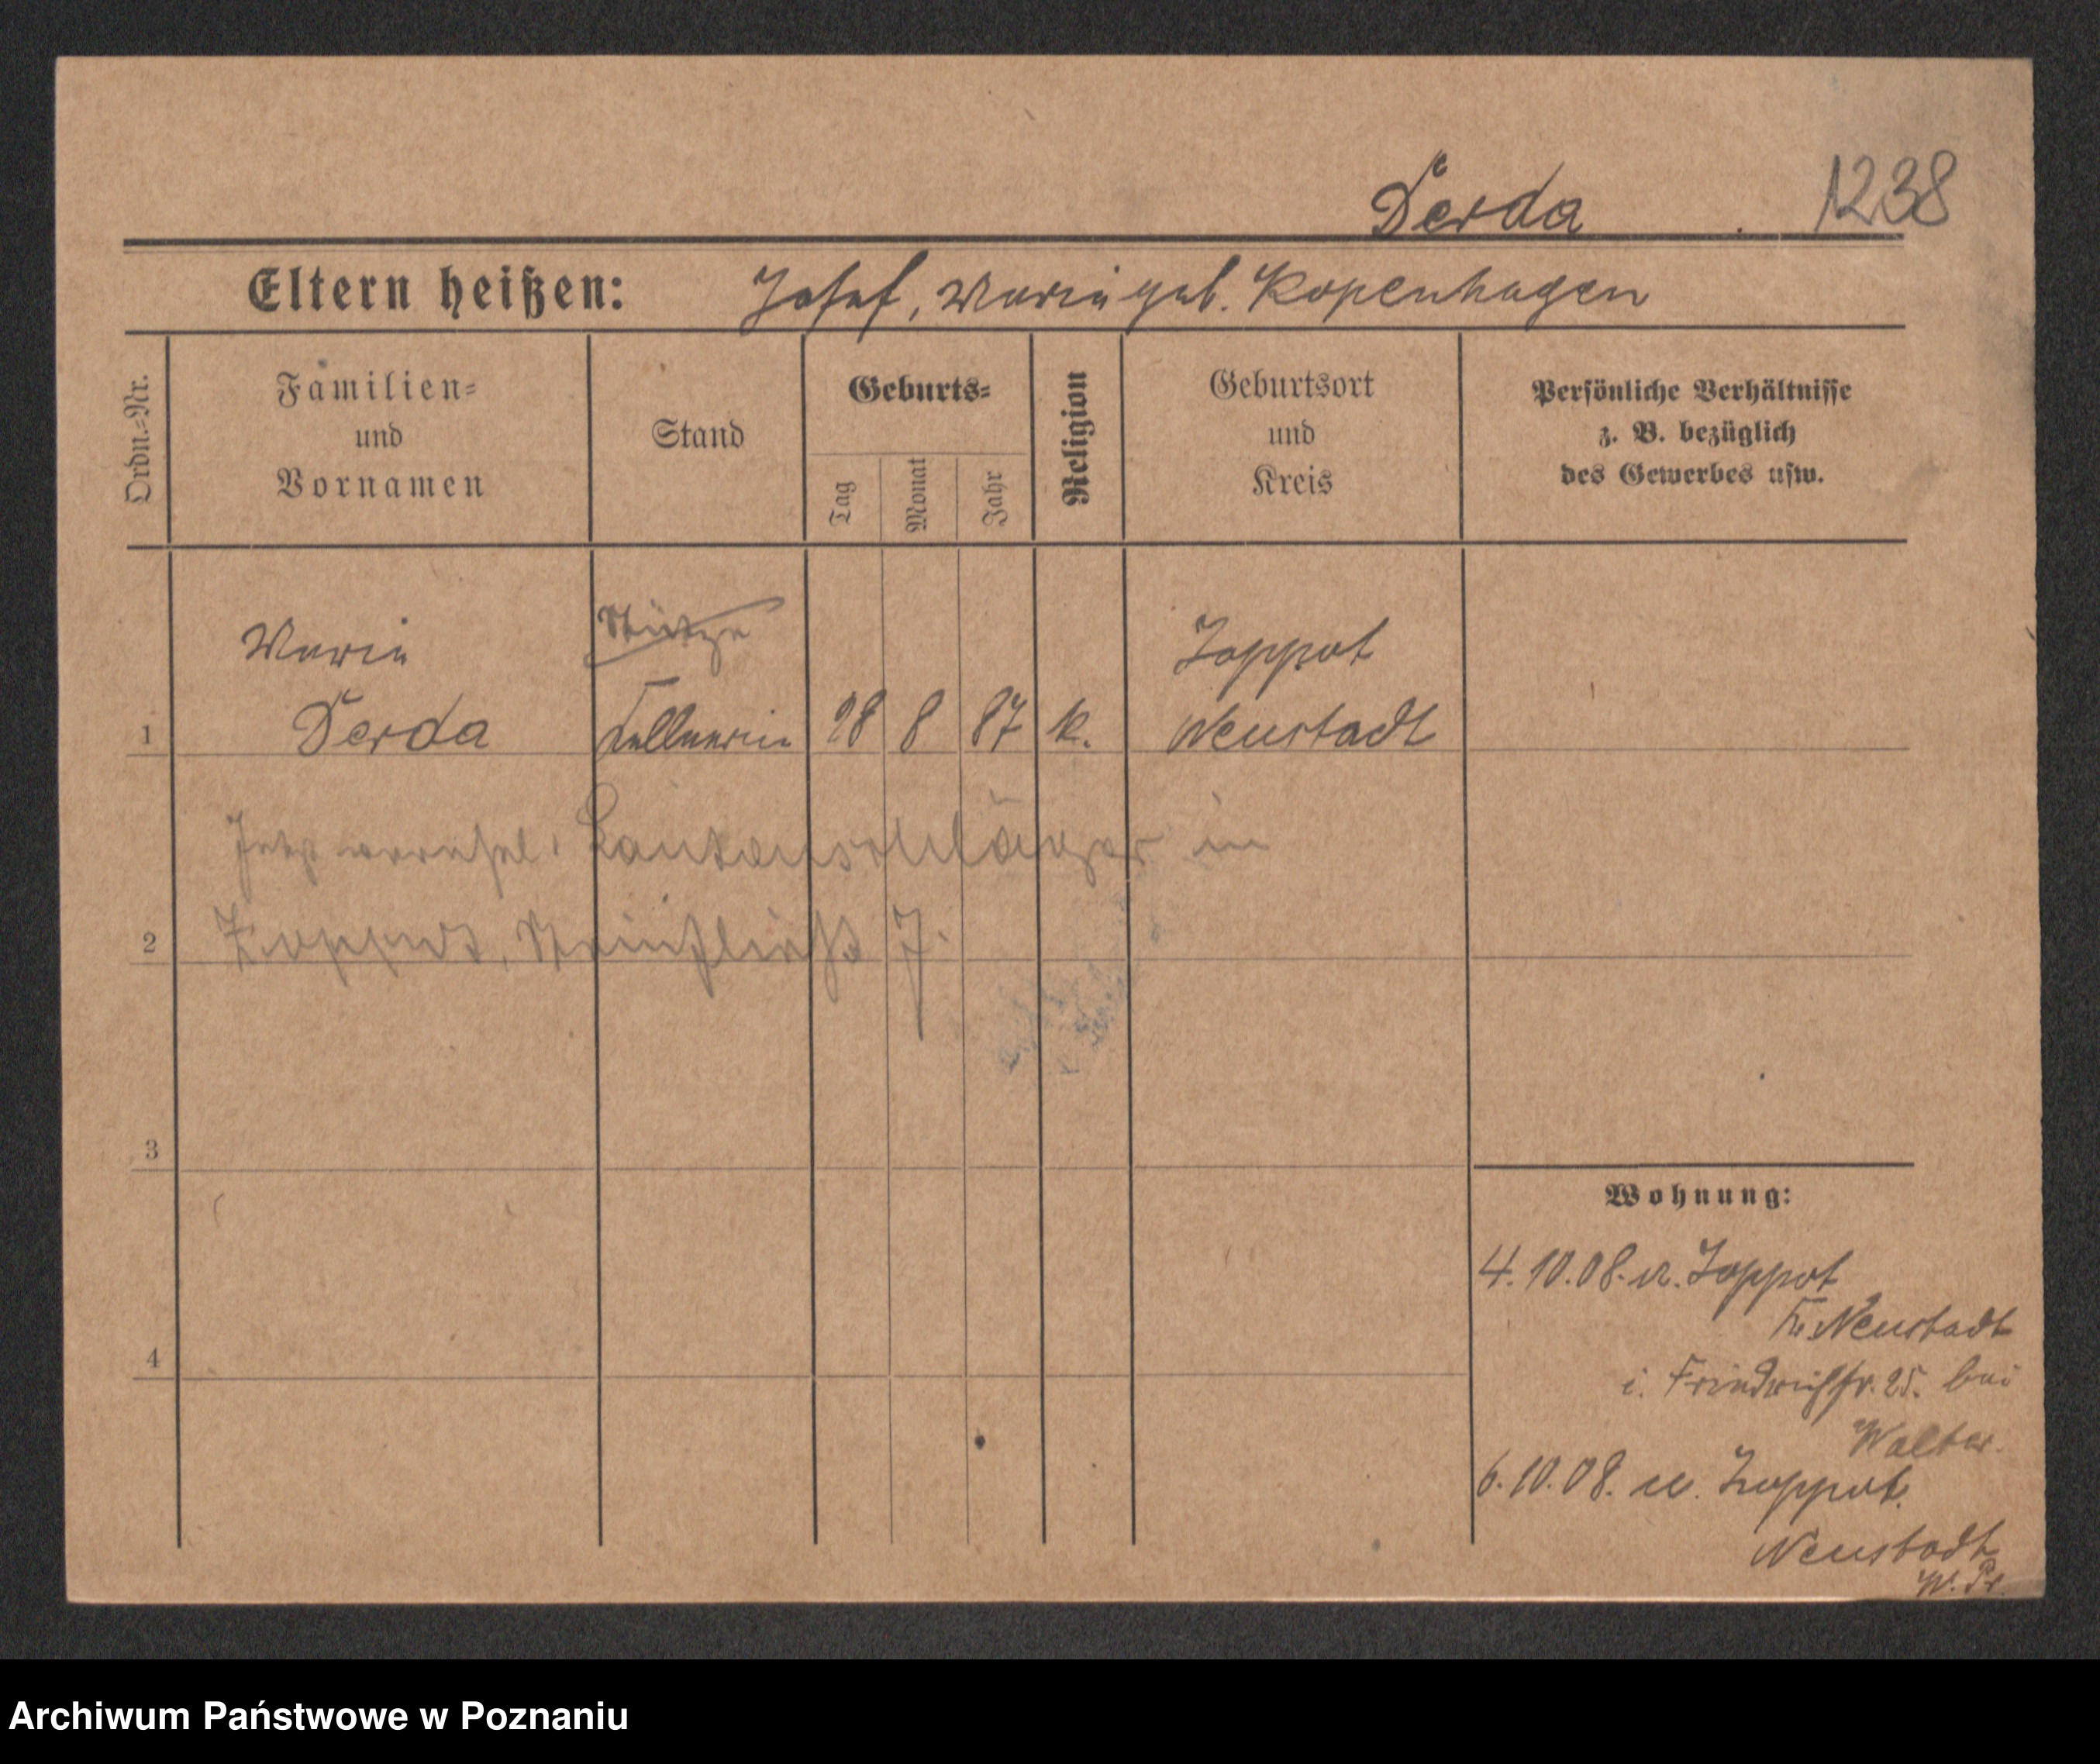 Derda 1238
Eltern heißen: Josef, Marie geb. Kopenhagen
Ordn.=Nr.
Familien=
und
Vornamen
Stand
Geburts=
Tag
Monat
Jahr
Religion
Geburtsort
und
Kreis
Persönliche Verhältnisse
z. B. bezüglich
des Gewerbes usw.
Marie Stütze Zoppot
1 Derda Kellnerin 28 8 87 k. Neustadt
Jetzt Lautenschläger in
2 Zoppot, 7.
3
Wohnung:
4. 10. 08. v. Zoppot
Kr. Neustadt
4
i. Friedrichstr. 25. bei
Walter.
6. 10. 08. n. Zoppot.
Neustadt
W. Pr.
Archiwum Państwowe w Poznaniu